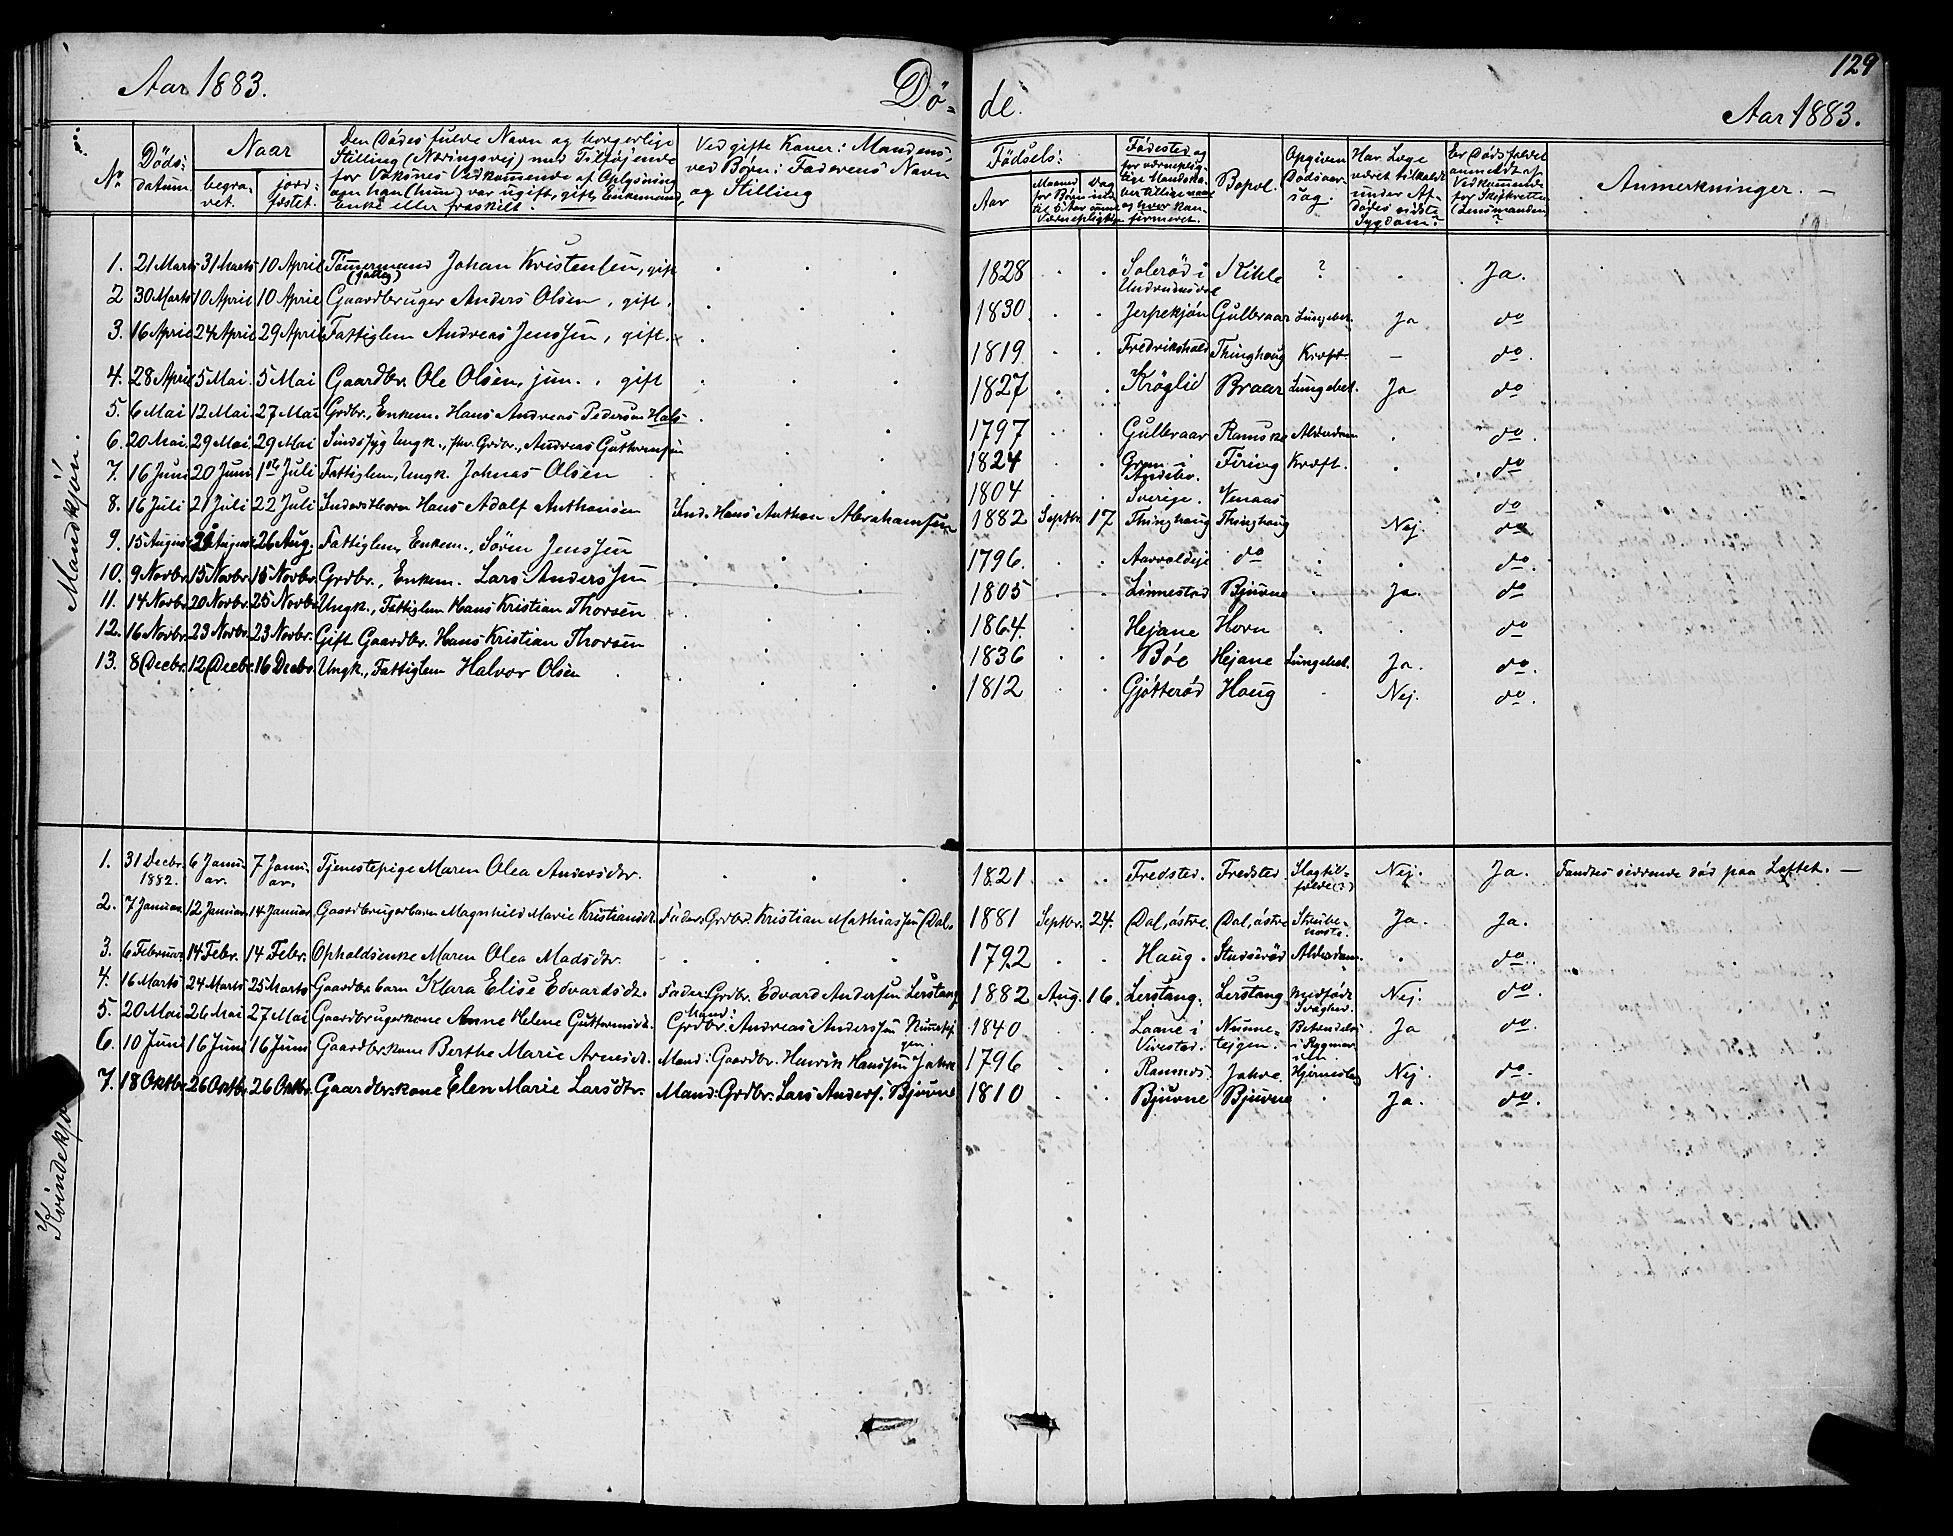 129
Aar 1883.
Dø-
de.
Aar 1883.
No
Døds:
datum.
Naar
begra-
vet.
jord-
fæstet.
Den Dødes fulde Navn og borgerlige
Stilling (Næringsvej) med Tilføjende
for Voksnes Vedkommende af Oplysning
om han (hun) var ugift, gift, Enkemand,
Enke eller fraskilt.
Ved gifte Koner: Mandens,
ved Børn: Faderens Navn
og Stilling
Fødsels:
Aar
Maaned
Dag
Fødested og
for værneplig-
tige Mandska-
ber tillige naar
og hvor kon-
firmeret.
Bopæl.
Opgiven
Dødsaar-
sag.
Har Læge
været tilkaldt
under Af-
dødes sidste
Sygdom?
Er Dødsfaldet
anmeldt af
Vedkommende
for Skifteretten
(Lensmanden)
?
Anmerkninger. —
Mandkjøn.
1. 21 Marts 31 Marts 10 April Tømmermand Johan Kristensen, gift . . . 1828 . . Solerød i Kihle ? . Ja.
(fattig)
Undrumsdal
2 30 Marts 10 April 10 April Gaardbruger Anders Olsen, gift. . . . 1830 . . Jerpekjøn Gulbraar Lungebet. Ja do
3. 16 April 24 April 29 April Fattiglem Andreas Jenssen, gift. . . . 1819 . . Fredrikshald Thinghoug Kræft. — do.
4. 28 April 5 Mai 5 Mai Gaardbr. Ole Olsen, jun., gift . . . 1827 . . Krøglid Braar Lungebet. Ja do
5. 6 Mai 12 Mai 27 Mai Grdbr., Enkem. Hans Andreas Pedersen Hals . . . 1797 . . Gulbraar Ramske Alderdom . do.
6. 20 Mai 29 Mai 29 Mai Sindssyg Ungk., fhv. Grdbr., Andreas Guttormsen . . . 1824 . . Grem i Firing Kræft. . do.
Andebu.
7. 16 Juni 20 Juni 1ste Juli Fattiglem, Ungk. Johnas Olsen . . . 1804 . . Sverige. Venaas do
8. 16 Juli 21 Juli 22 Juli Inderstbarn Hans Adolf Anthonsen Ind. Hans Anthon Abrahamsen 1882 Septbr. 17 Thinghaug Thinghaug Nej. do
9. 15 August 26 Aug. Fattiglem, Enkem., Søren Jenssen . . . 1796. . . Aarvoldeje do . . do.
10. 9 Novbr. 15 Novbr. 15 Novbr. Grdbr., Enkem. Lars Anderssen . . . 1805 . . Linnestad Bjuvne . Ja. do
11. 14 Novbr. 20 Novbr. 25 Novbr. Ungk., Fattiglem Hans Kristian Thorsen . . . 1864. . . Hejane Horn . . do
12. 16 Novbr. 23 Novbr. 23 Novbr. Gift Gaardbr. Hans Kristian Thorsen . . . 1836 . . Bøe Hejane Lungebet. Ja. do.
13. 8 Decbr. 12 Decbr. 16 Decbr. Ungk., Fattiglem Halvor Olsen . . . 1812 . . Gjøtterød Haug . Nej. do.
Kvindekjøn
1. 31 Decbr. 6 Janu- 7 Janu- Tjenestepige Maren Olea Andersdtr. . . . 1821 . . Fredsted. Fredsted Slagtil- Nej. Ja. Fandtes siddende død paa Loftet. —
1882. ar. ar. fælde (?)
2. 7 Januar 12 Januar 14 Januar Gaardbrugerbarn Magnhild Marie Kristiansdtr. Fader: Grdbr. Kristian Mathiassen Dal. 1881 Septbr. 24. Dal, østre. Dal, østre Strube- Ja. Ja.
hoste.
3. 6 Februar 14 Febr. 14 Febr. Opholdsenke Maren Olea Madsdtr. . . . 1792 . . Haug. Studserød Alderdom. . do.
4. 16 Marts 24 Marts 25 Marts Gaardbr. barn Klara Elise Edvardsdtr. Fader: Grdbr. Edvard Andersen Lerstang 1882 Aug. 16. Lerstang. Lerstang Medfødt Nej. do.
Svaghed.
5. 20 Mai 26 Mai 27 Mai Gaardbrugerkone Anne Helene Guttormsdtr. Mand: Grdbr. Andreas Anderssen 1840 . . Laane i Numme- Betændelse Ja do.
Vivestad. tejgen. i Rygmar-
ven.
6. 10 Juni 16 Juni 16 Juni Gaardbr. kone Berthe Marie Arnesdtr. Mand: Gaardbr. Henrik Hanssen Jahre 1796 . . Ramnes. Jahre. Nej. do.
7. 18 Oktbr. 26 Oktbr. 26 Oktbr. Gaardbr. kone Elen Marie Larsdtr. Mand: Grdbr. Lars Anders. Bjuvne 1810 . . Bjuvne Bjuvne . Ja. do.